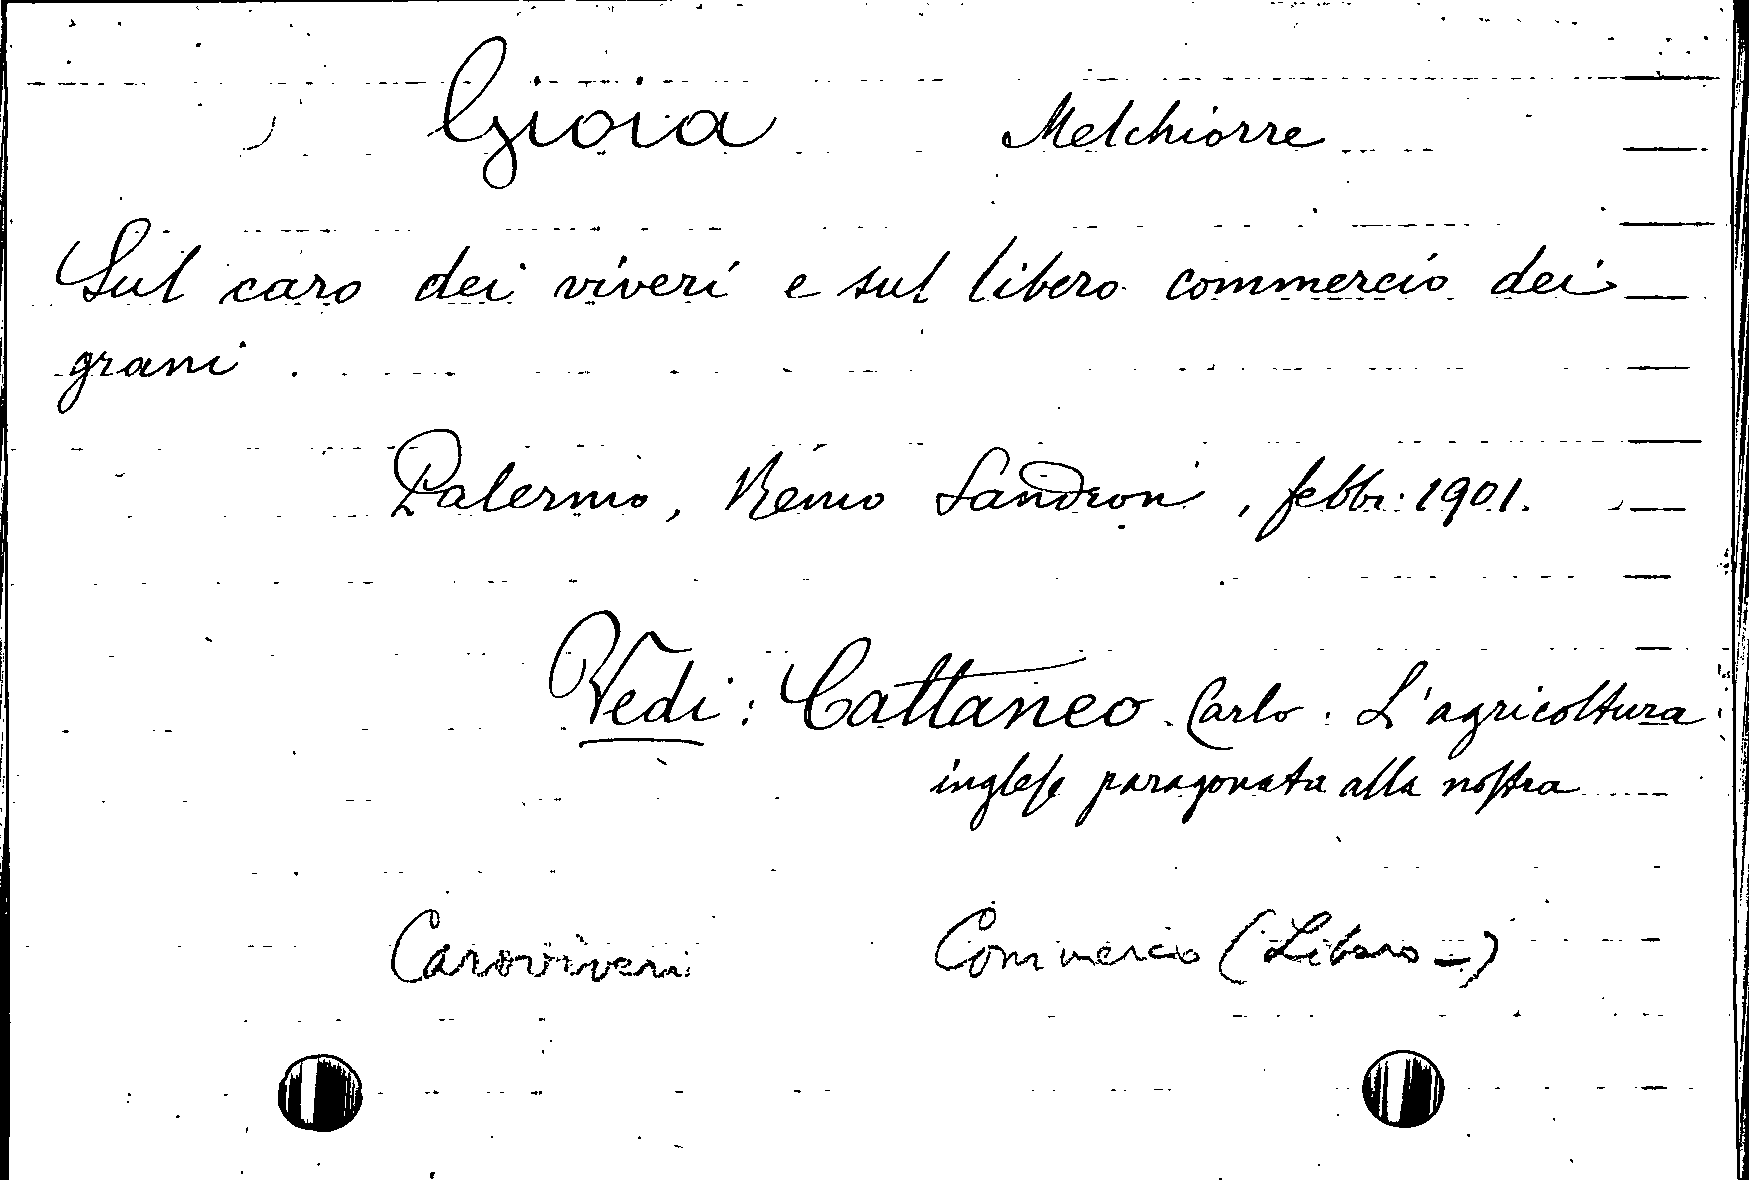 Gioia Melchiorre
Sul caro dei viveri e sul libero commercio dei
grani
Palermo, Remo Sandron, febbr: 1901.
Vedi: Cattaneo Carlo: L'agricoltura
inglese paragonata alla nostra
Caroviveri Commercio (Libero -)